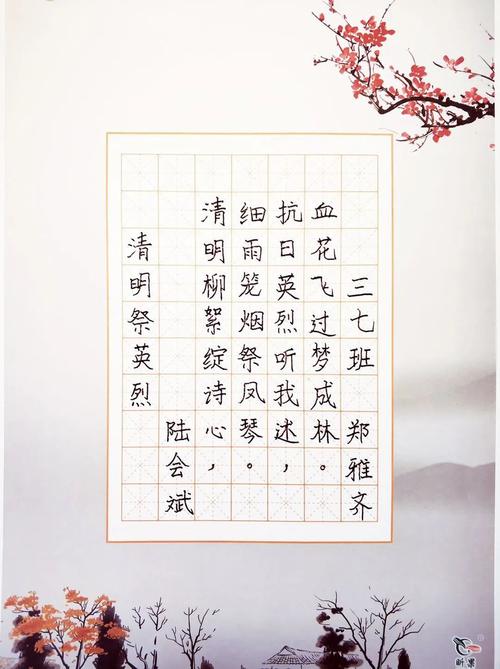 清明祭英烈
陆会斌
清明柳絮绽诗心，
细雨笼烟祭凤琴。
抗日英烈听我述，
血花飞过梦成林。
三七班 郑雅齐